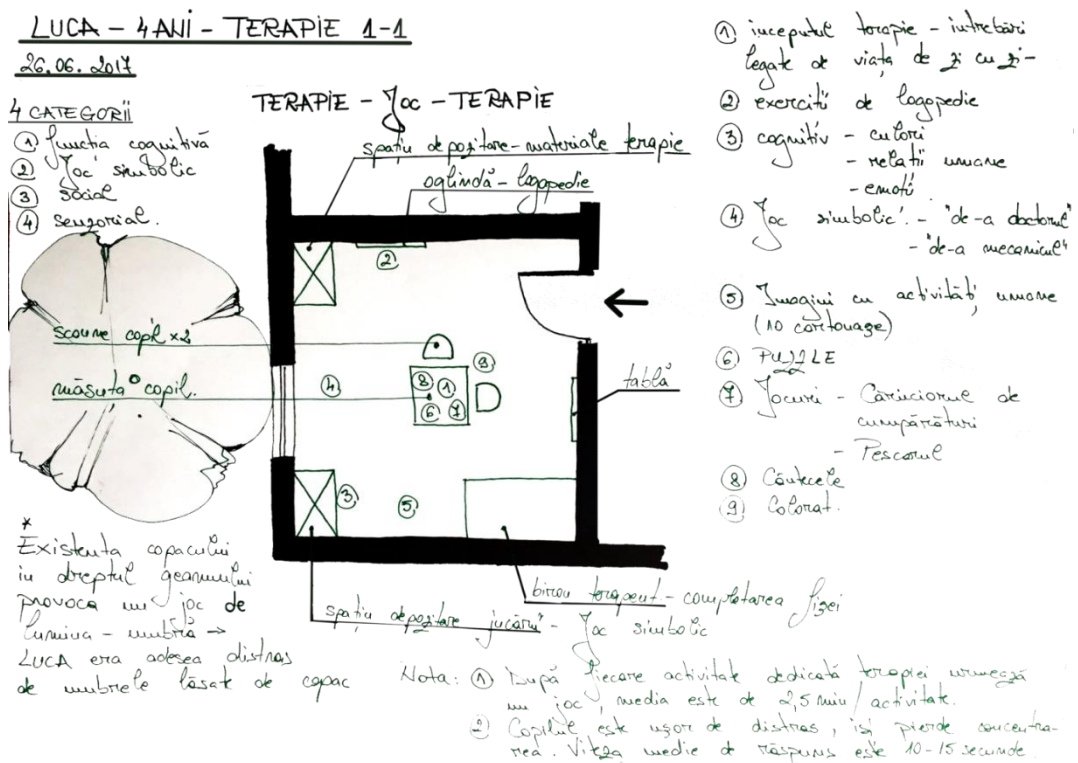 LUCA – 4 ANI – TERAPIE 1-1
26.06.2017
4 CATEGORII
① funcția cognitivă
② Joc simbolic
③ social
④ senzorial.
TERAPIE – Joc – TERAPIE
spațiu depozitare – materiale terapie
oglindă – logopedie
scaune copil x2
măsuța copil.
tablă
birou terapeut – completarea fișei
spațiu depozitare jucării – Joc simbolic
②
④
③
⑤
⑨
⑧ ①
⑥ ⑦
*
Existența copacului
in dreptul geamului
provoca un joc de
lumina – umbră →
LUCA era adesea distras
de umbrele lăsate de copac
① inceputul terapie – intrebări
legate de viața de zi cu zi –
② exercitii de logopedie
③ cognitiv – culori
– relatii umane
– emotii
④ Joc simbolic. – "de-a doctorul"
– "de-a mecanicul"
⑤ Imagini cu activități umane
(10 cartonașe)
⑥ PUZZLE
⑦ Jocuri – Căruciorul de
cumpărături
– Pescarul
⑧ Cântecele
⑨ Colorat.
Nota: ① După fiecare activitate dedicată terapiei urmează
un joc, media este de 2,5 min / activitate.
② Copilul este ușor de distras, iși pierde concentra-
rea. Viteza medie de răspuns este 10-15 secunde